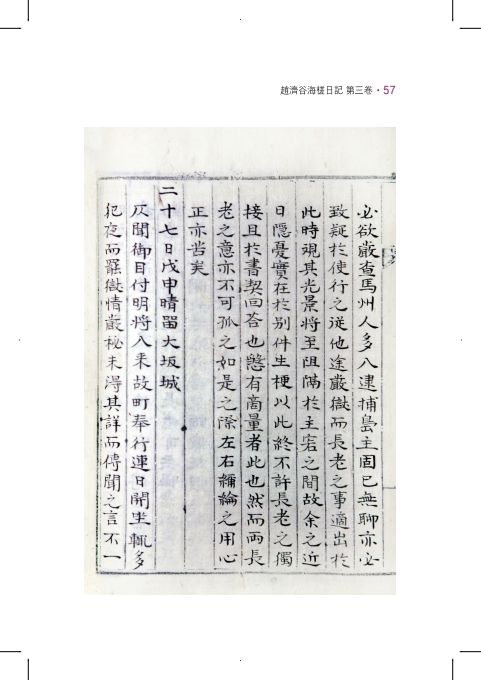 趙濟谷海槎日記 第三卷 · 57
必欲嚴查馬州人多入逮捕島主固已無聊亦必
致疑於使行之從他途嚴徵而長老之事適出於
此時視其光景將至阻隔於主宕之間故余之近
日隱憂實在於別件生梗以此終不許長老之獨
接且於書契回答也慇有商量者此也然而兩長
老之意亦不可孤之如是之際左右彌綸之用心
正亦苦矣
二十七日戊申晴留大坂城
仄聞御目付明將入來故町奉行連日開坐輒多
犯夜而罷獄情嚴祕未得其詳而傳聞之言不一